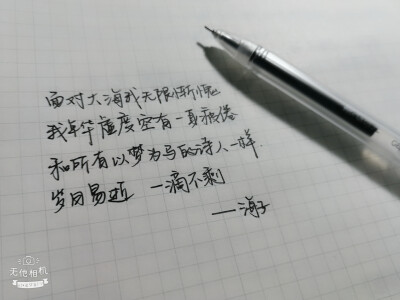 面对大海我无限惭愧
我年华虚度空有一身疲倦
和所有以梦为马的诗人一样
岁月易逝 一滴不剩
——海子
无他相机